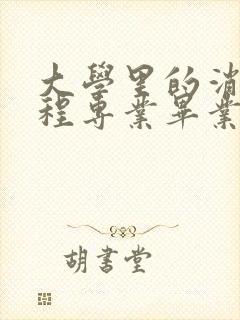 大學里的消
程專業畢業
胡書堂